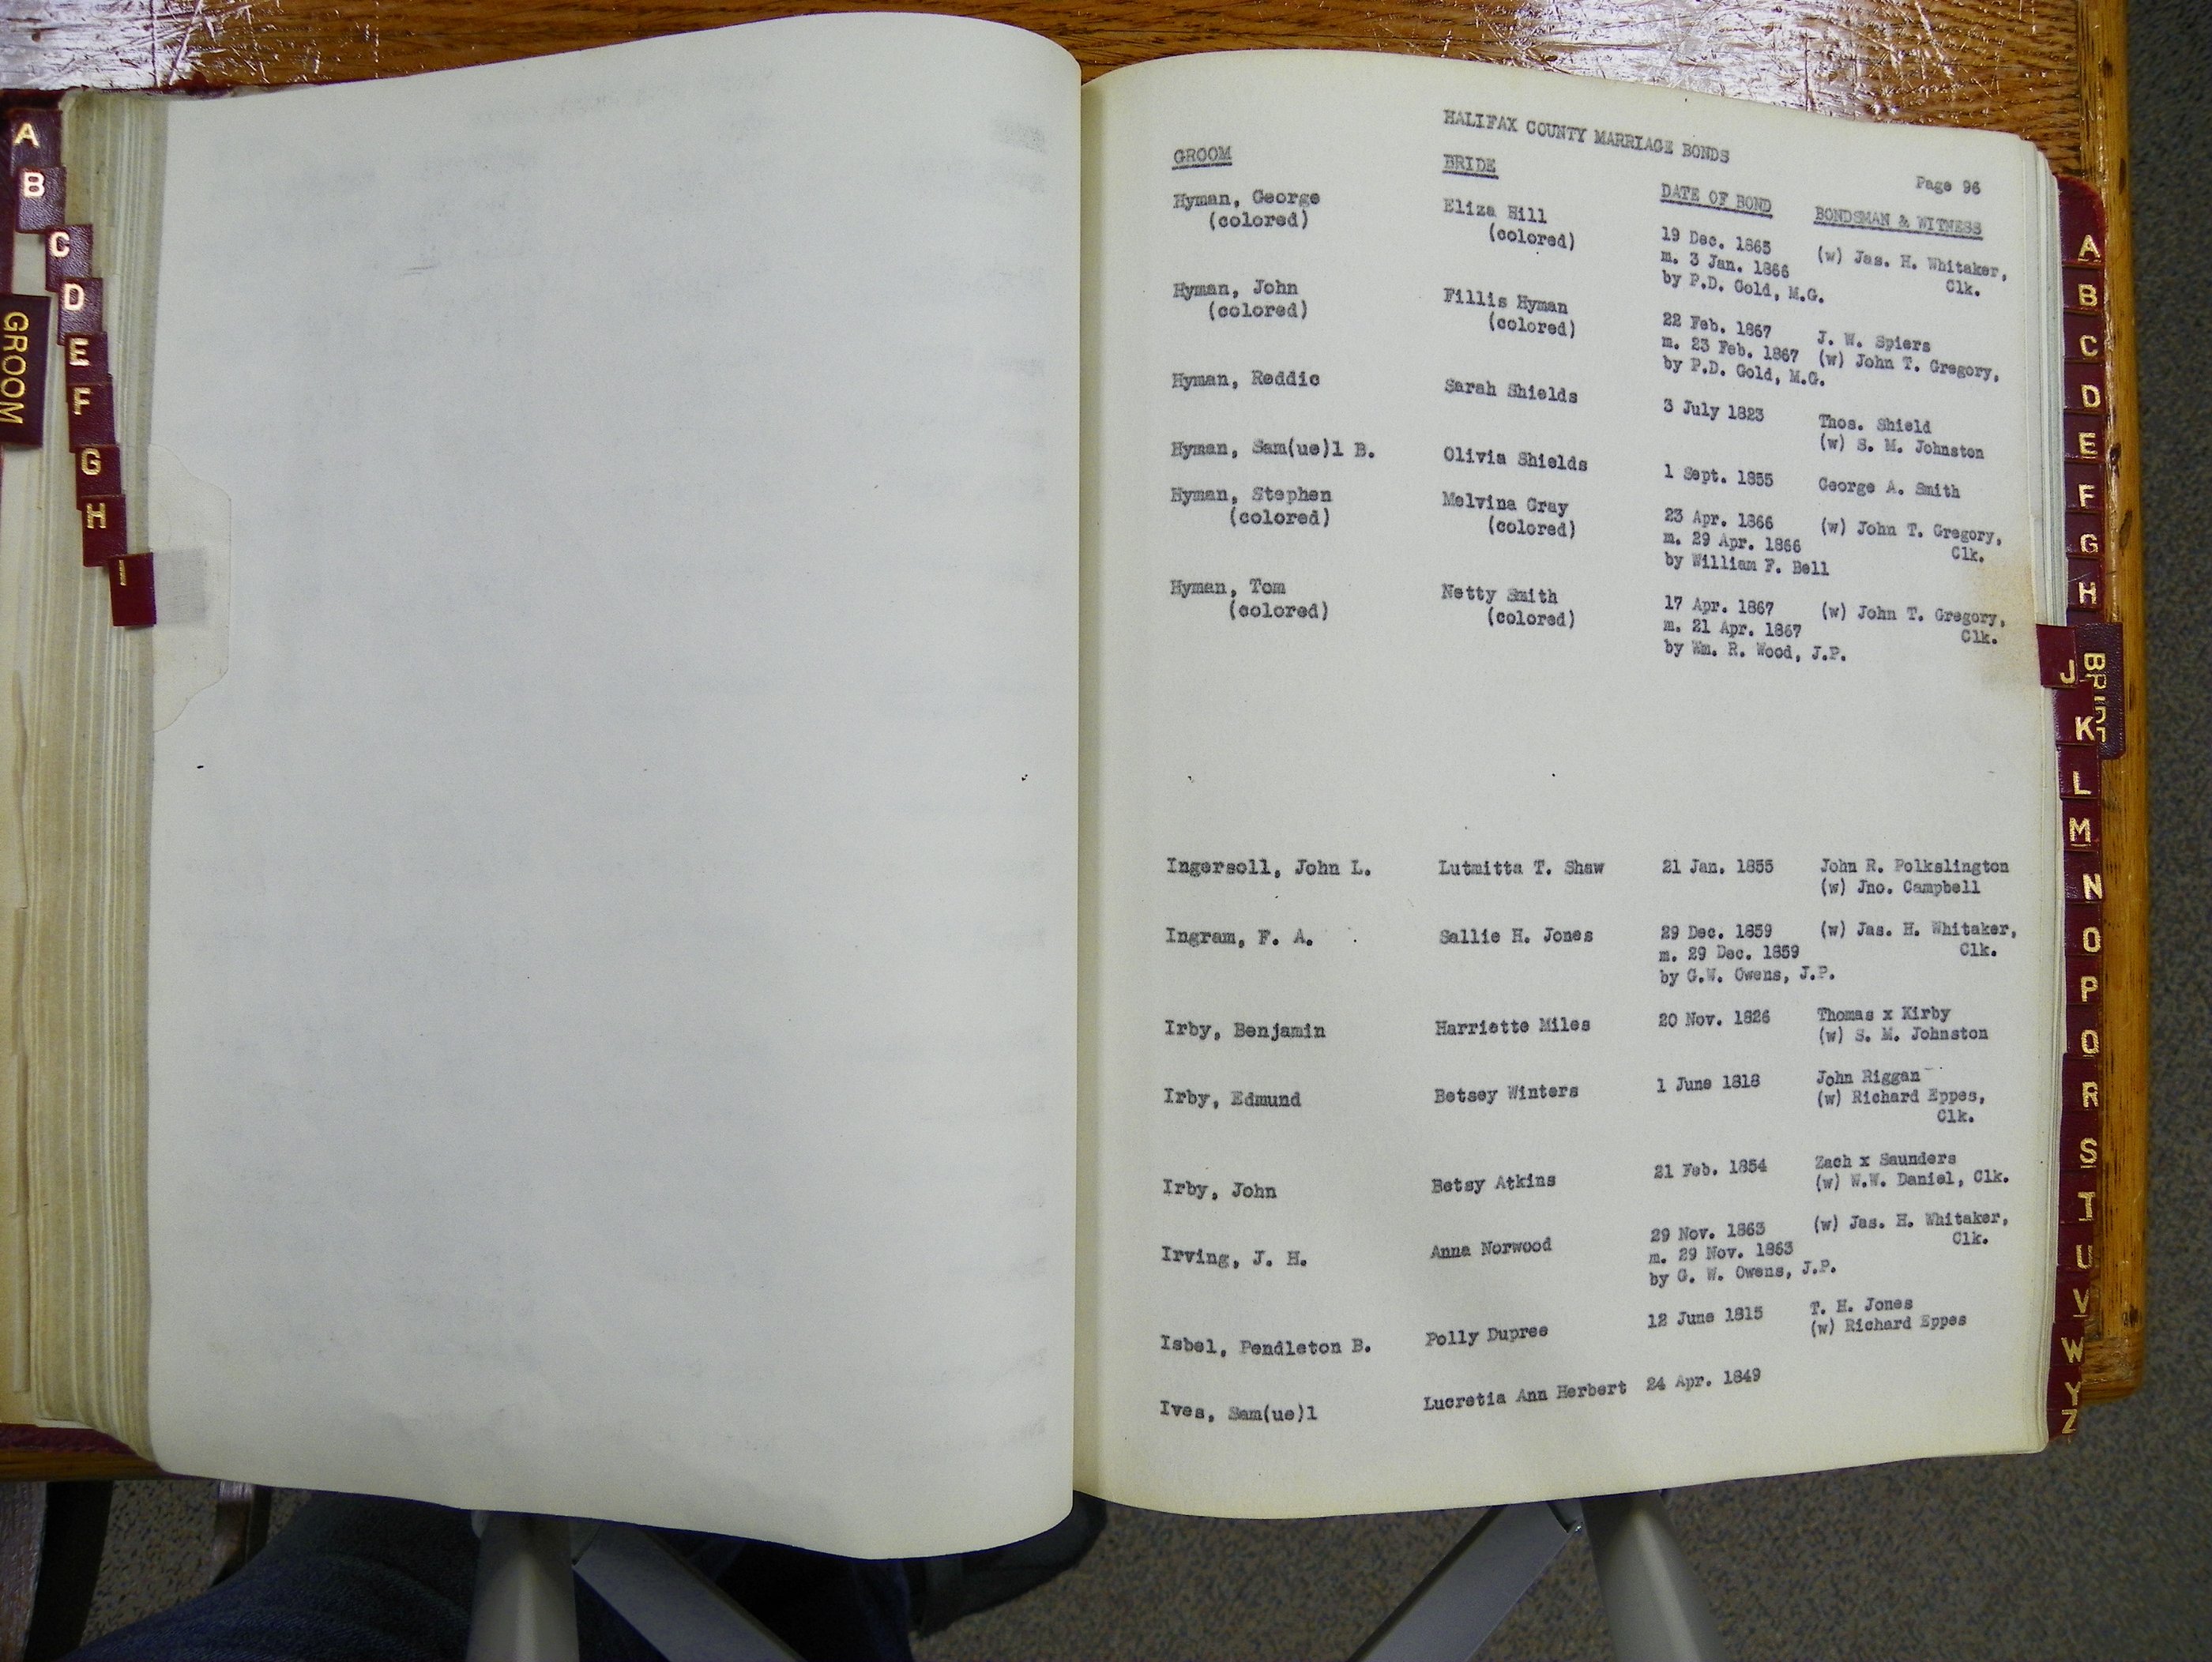 A
B
C
D
E
F
G
H
I
GROOM
HALIFAX COUNTY MARRIAGE BONDS
Page 96
GROOM BRIDE DATE OF BOND BONDSMAN & WITNESS
Hyman, George Eliza Hill 19 Dec. 1865 (w) Jas. H. Whitaker,
(colored) (colored) m. 3 Jan. 1866 Clk.
by P.D. Gold, M.G.
Hyman, John Fillis Hyman 22 Feb. 1867 J. W. Spiers
(colored) (colored) m. 23 Feb. 1867 (w) John T. Gregory,
by P.D. Gold, M.G.
Hyman, Reddic Sarah Shields 3 July 1823 Thos. Shield
(w) S. M. Johnston
Hyman, Sam(ue)l B. Olivia Shields 1 Sept. 1855 George A. Smith
Hyman, Stephen Melvina Gray 23 Apr. 1866 (w) John T. Gregory,
(colored) (colored) m. 29 Apr. 1866 Clk.
by William F. Bell
Hyman, Tom Netty Smith 17 Apr. 1867 (w) John T. Gregory,
(colored) (colored) m. 21 Apr. 1867 Clk.
by Wm. R. Wood, J.P.
Ingersoll, John L. Lutmitta T. Shaw 21 Jan. 1855 John R. Polkslington
(w) Jno. Campbell
Ingram, F. A. Sallie H. Jones 29 Dec. 1859 (w) Jas. H. Whitaker,
m. 29 Dec. 1859 Clk.
by G.W. Owens, J.P.
Irby, Benjamin Harriette Miles 20 Nov. 1826 Thomas x Kirby
(w) S. M. Johnston
Irby, Edmund Betsey Winters 1 June 1818 John Riggan
(w) Richard Eppes,
Clk.
Irby, John Betsy Atkins 21 Feb. 1854 Zach x Saunders
(w) W.W. Daniel, Clk.
Irving, J. H. Anna Norwood 29 Nov. 1863 (w) Jas. H. Whitaker,
m. 29 Nov. 1863 Clk.
by G. W. Owens, J.P.
Isbel, Pendleton B. Polly Dupree 12 June 1815 T. H. Jones
(w) Richard Eppes
Ives, Sam(ue)l Lucretia Ann Herbert 24 Apr. 1849
A
B
C
D
E
F
G
H
J
BRIDE
K
L
M
N
O
P
Q
R
S
T
U
V
W
Y
Z